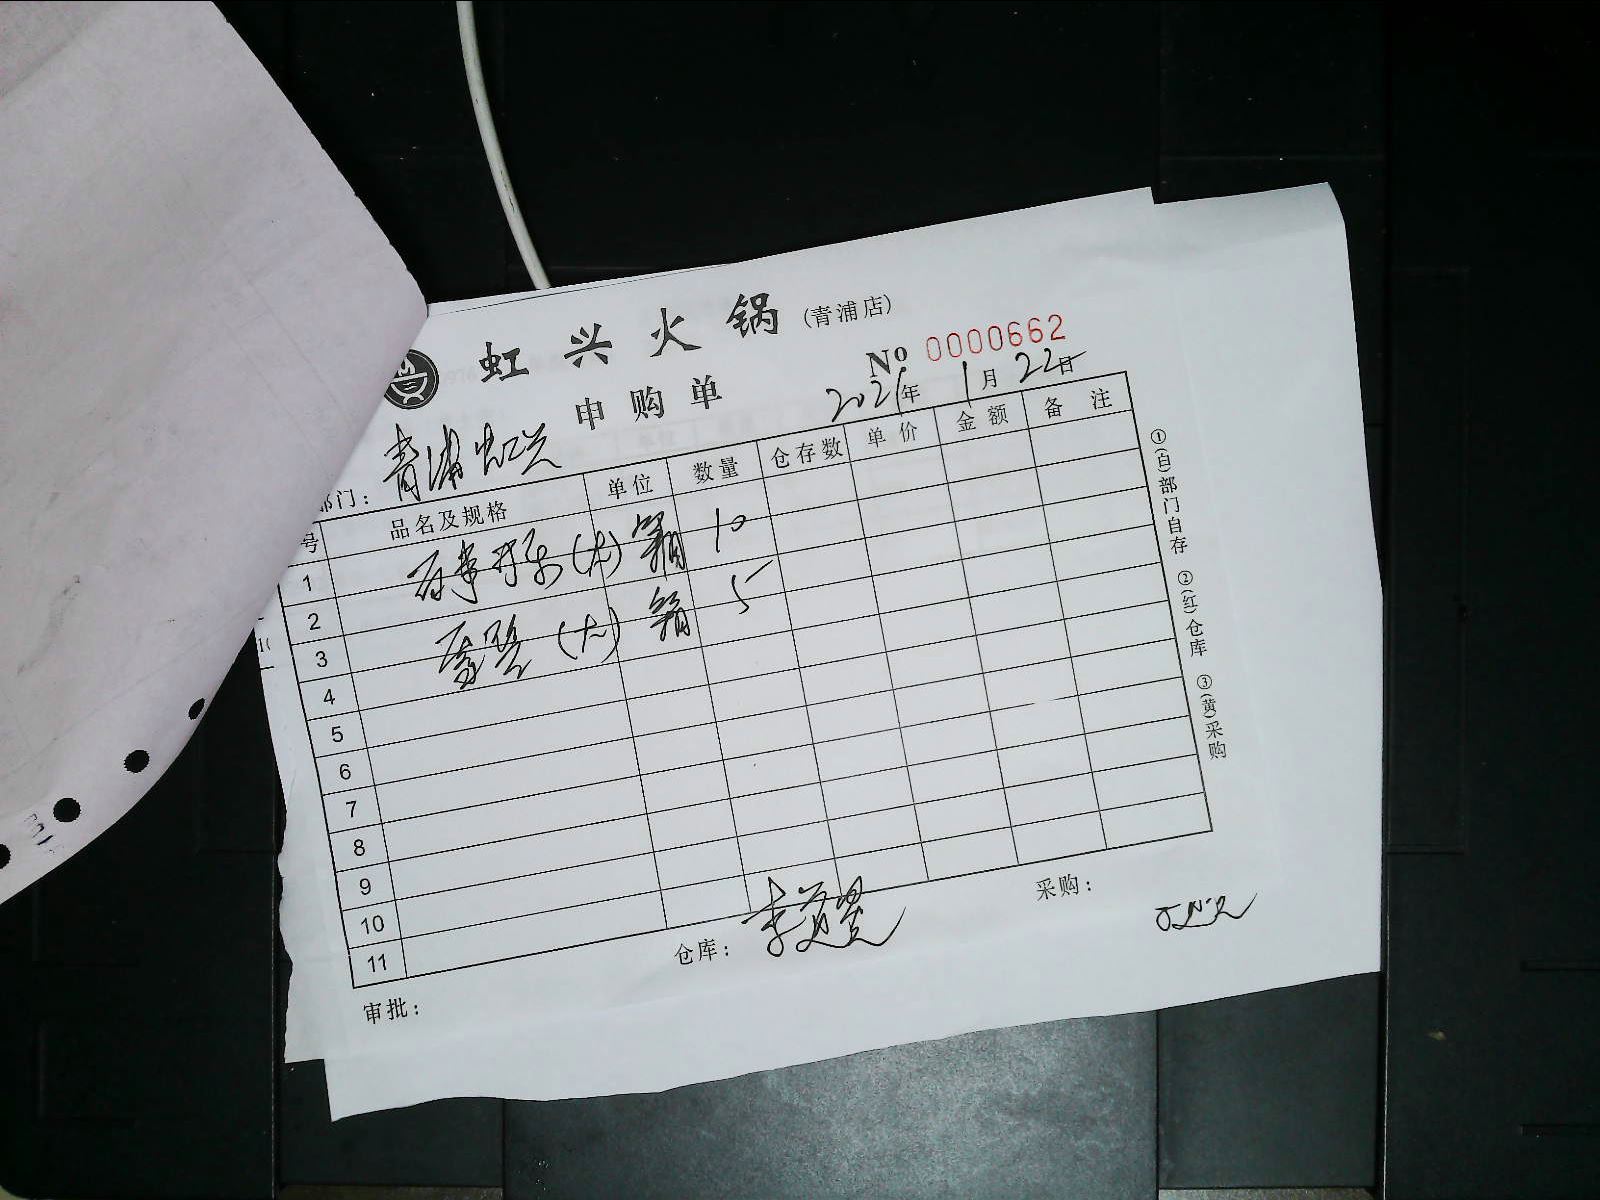 虹兴火锅(青浦店)
申购单
№ 0000662
2021年1月22日
部门：青浦虹兴
号 品名及规格 单位 数量 仓存数 单价 金额 备注
1 百事可乐(大) 箱 10
2
3 雪碧(大) 箱 5
4
5
6
7
8
9
10
11
①(白)部门自存 ②(红)仓库 ③(黄)采购
审批： 仓库： 采购：